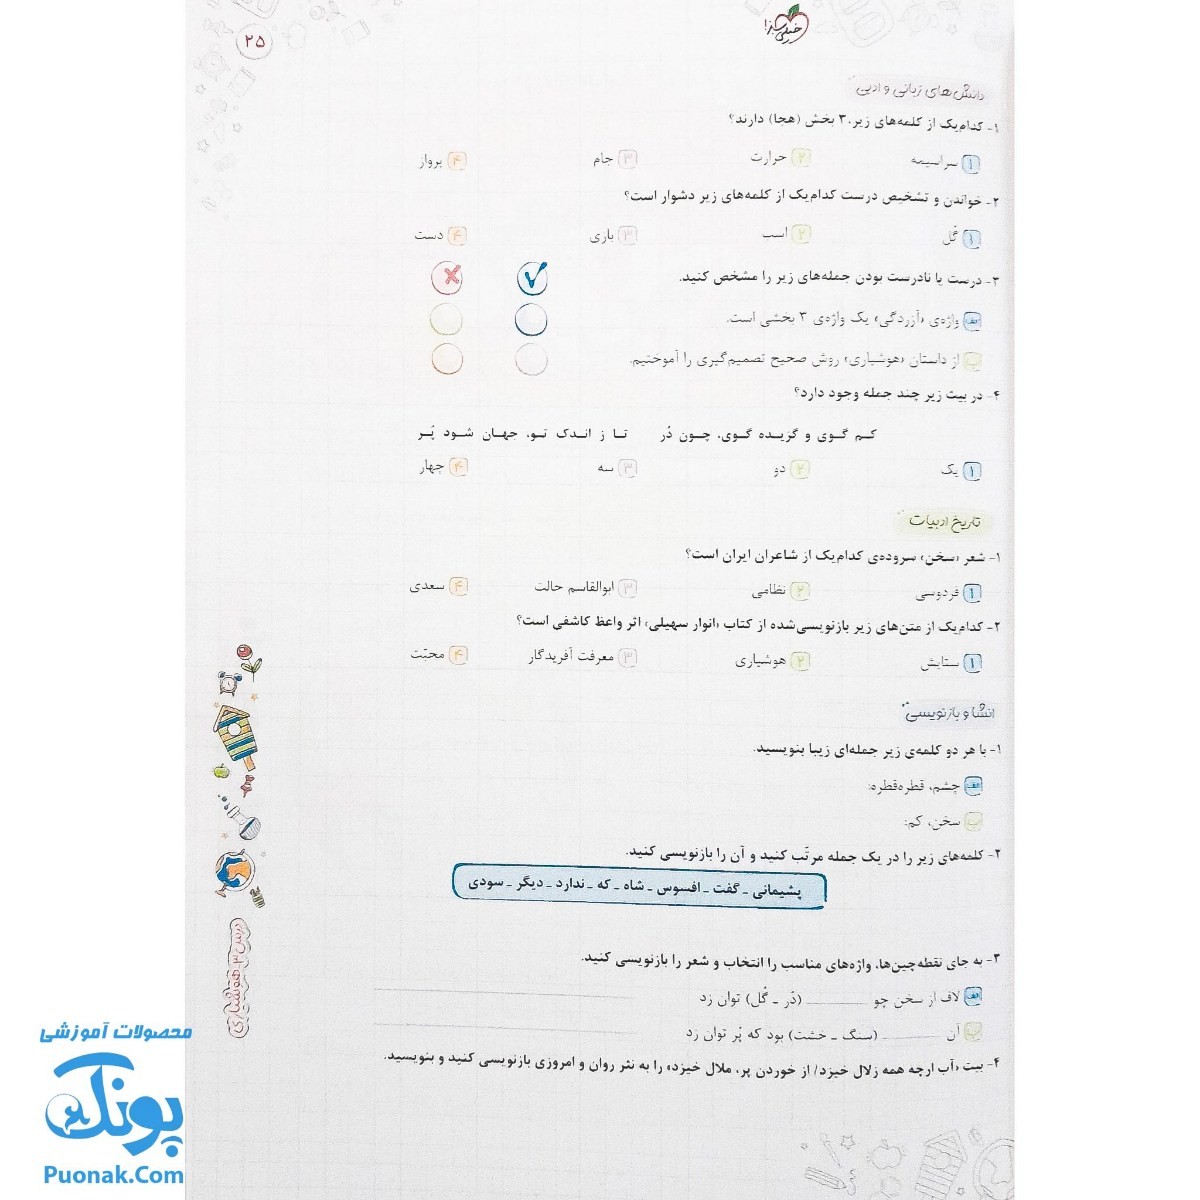 ۲۵
خیلی سبز!
دانش‌های زبانی و ادبی
۱- کدام‌یک از کلمه‌های زیر، ۳ بخش (هجا) دارند؟
۱ سراسیمه ۲ حرارت ۳ جام ۴ پرواز
۲- خواندن و تشخیص درست کدام‌یک از کلمه‌های زیر دشوار است؟
۱ گُل ۲ اسب ۳ بازی ۴ دست
۳- درست یا نادرست بودن جمله‌های زیر را مشخص کنید.
الف واژه‌ی «آزردگی» یک واژه‌ی ۳ بخشی است.
ب از داستان «هوشیاری» روش صحیح تصمیم‌گیری را آموختیم.
۴- در بیت زیر چند جمله وجود دارد؟
کم گوی و گزیده گوی، چون دُر تا ز اندک تو، جهان شود پُر
۱ یک ۲ دو ۳ سه ۴ چهار
تاریخ ادبیات
۱- شعر «سخن» سروده‌ی کدام‌یک از شاعران ایران است؟
۱ فردوسی ۲ نظامی ۳ ابوالقاسم حالت ۴ سعدی
۲- کدام‌یک از متن‌های زیر بازنویسی‌شده از کتاب «انوار سهیلی» اثر واعظ کاشفی است؟
۱ ستایش ۲ هوشیاری ۳ معرفت آفریدگار ۴ محبّت
انشا و بازنویسی
۱- با هر دو کلمه‌ی زیر جمله‌ای زیبا بنویسید.
الف چشم، قطره‌قطره:
ب سخن، کم:
۲- کلمه‌های زیر را در یک جمله مرتّب کنید و آن را بازنویسی کنید.
پشیمانی ـ گفت ـ افسوس ـ شاه ـ که ـ ندارد ـ دیگر ـ سودی
۳- به جای نقطه‌چین‌ها، واژه‌های مناسب را انتخاب و شعر را بازنویسی کنید.
الف لاف از سخن چو ........ (دُر ـ گُل) توان زد
ب آن ........ (سنگ ـ خشت) بود که پُر توان زد
۴- بیت «آب ارچه همه زلال خیزد/ از خوردن پر، ملال خیزد» را به نثر روان و امروزی بازنویسی کنید و بنویسید.
درس ۳- هوشیاری
محصولات آموزشی
پونک
Puonak.Com